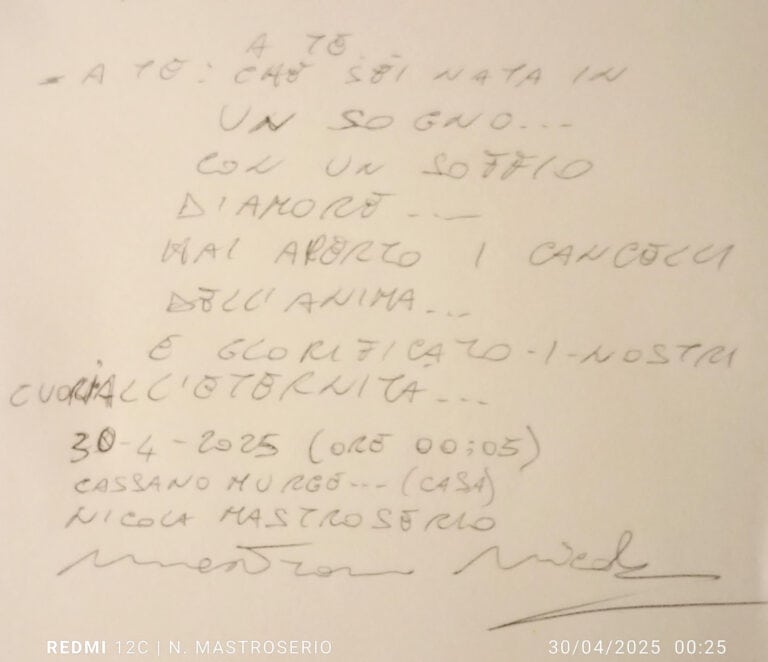 A TE...
- A TE: CHE SEI NATA IN
UN SOGNO...
CON UN SOFFIO
D'AMORE...
HAI APERTO I CANCELLI
DELL'ANIMA...
E GLORIFICATO - I - NOSTRI
CUORI ALL'ETERNITÀ...
30-4-2025 (ORE 00:05)
CASSANO MURGE... (CASA)
NICOLA MASTROSERIO
REDMI 12C | N. MASTROSERIO
30/04/2025 00:25